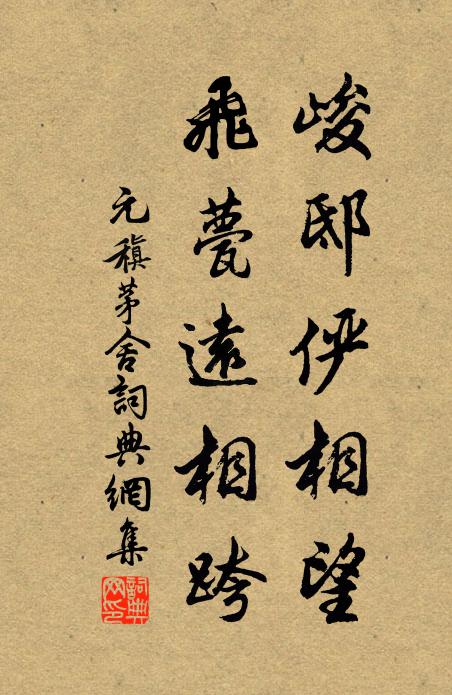 峻邸俨相望
飛甍遠相跨
元稹茅舍詞典網集
詞典网印